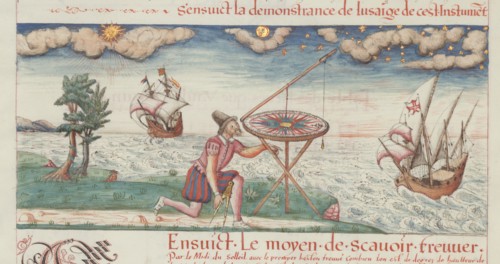 Sensuict la demonstrance de lusaige de cest Instrumēt
Ensuict. Le moyen. de. scavoir. treuuer.
Par le Midi du Solleil avec le premier baston trouué combien ton est de degrez de haulteur de